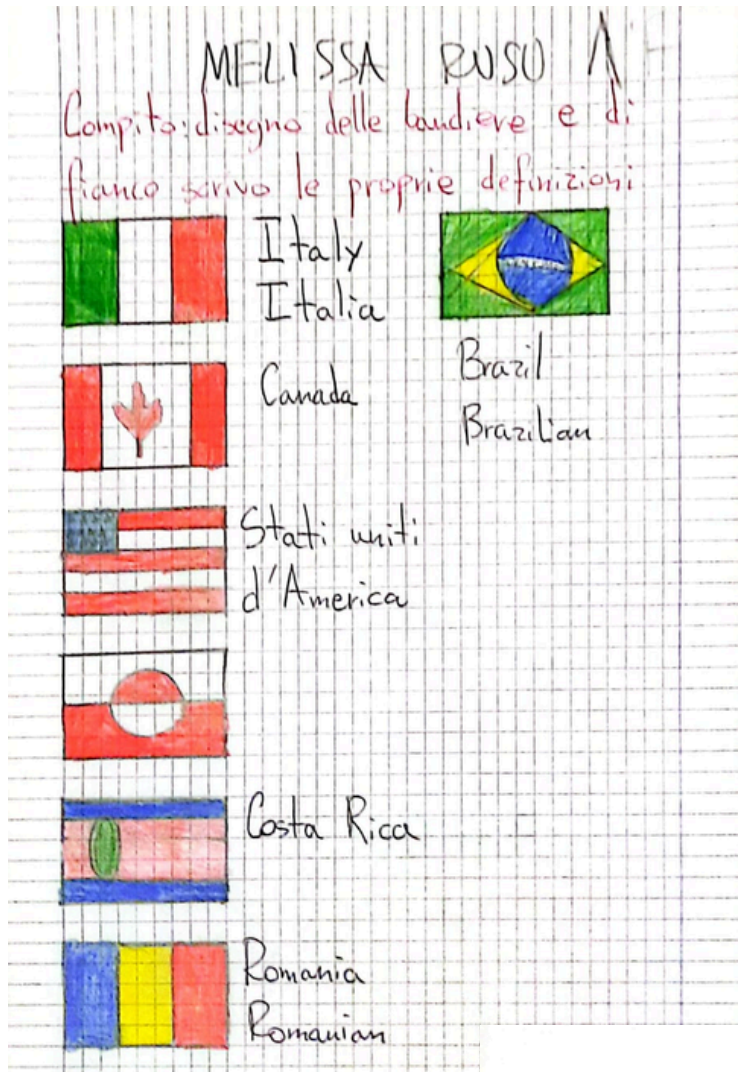 MELISSA RUSU 1
Compito: disegno delle bandiere e di
fianco scrivo le proprie definizioni
Italy
Italia
Canada
Stati uniti
d'America
Costa Rica
Romania
Romanian
Brazil
Brazilian